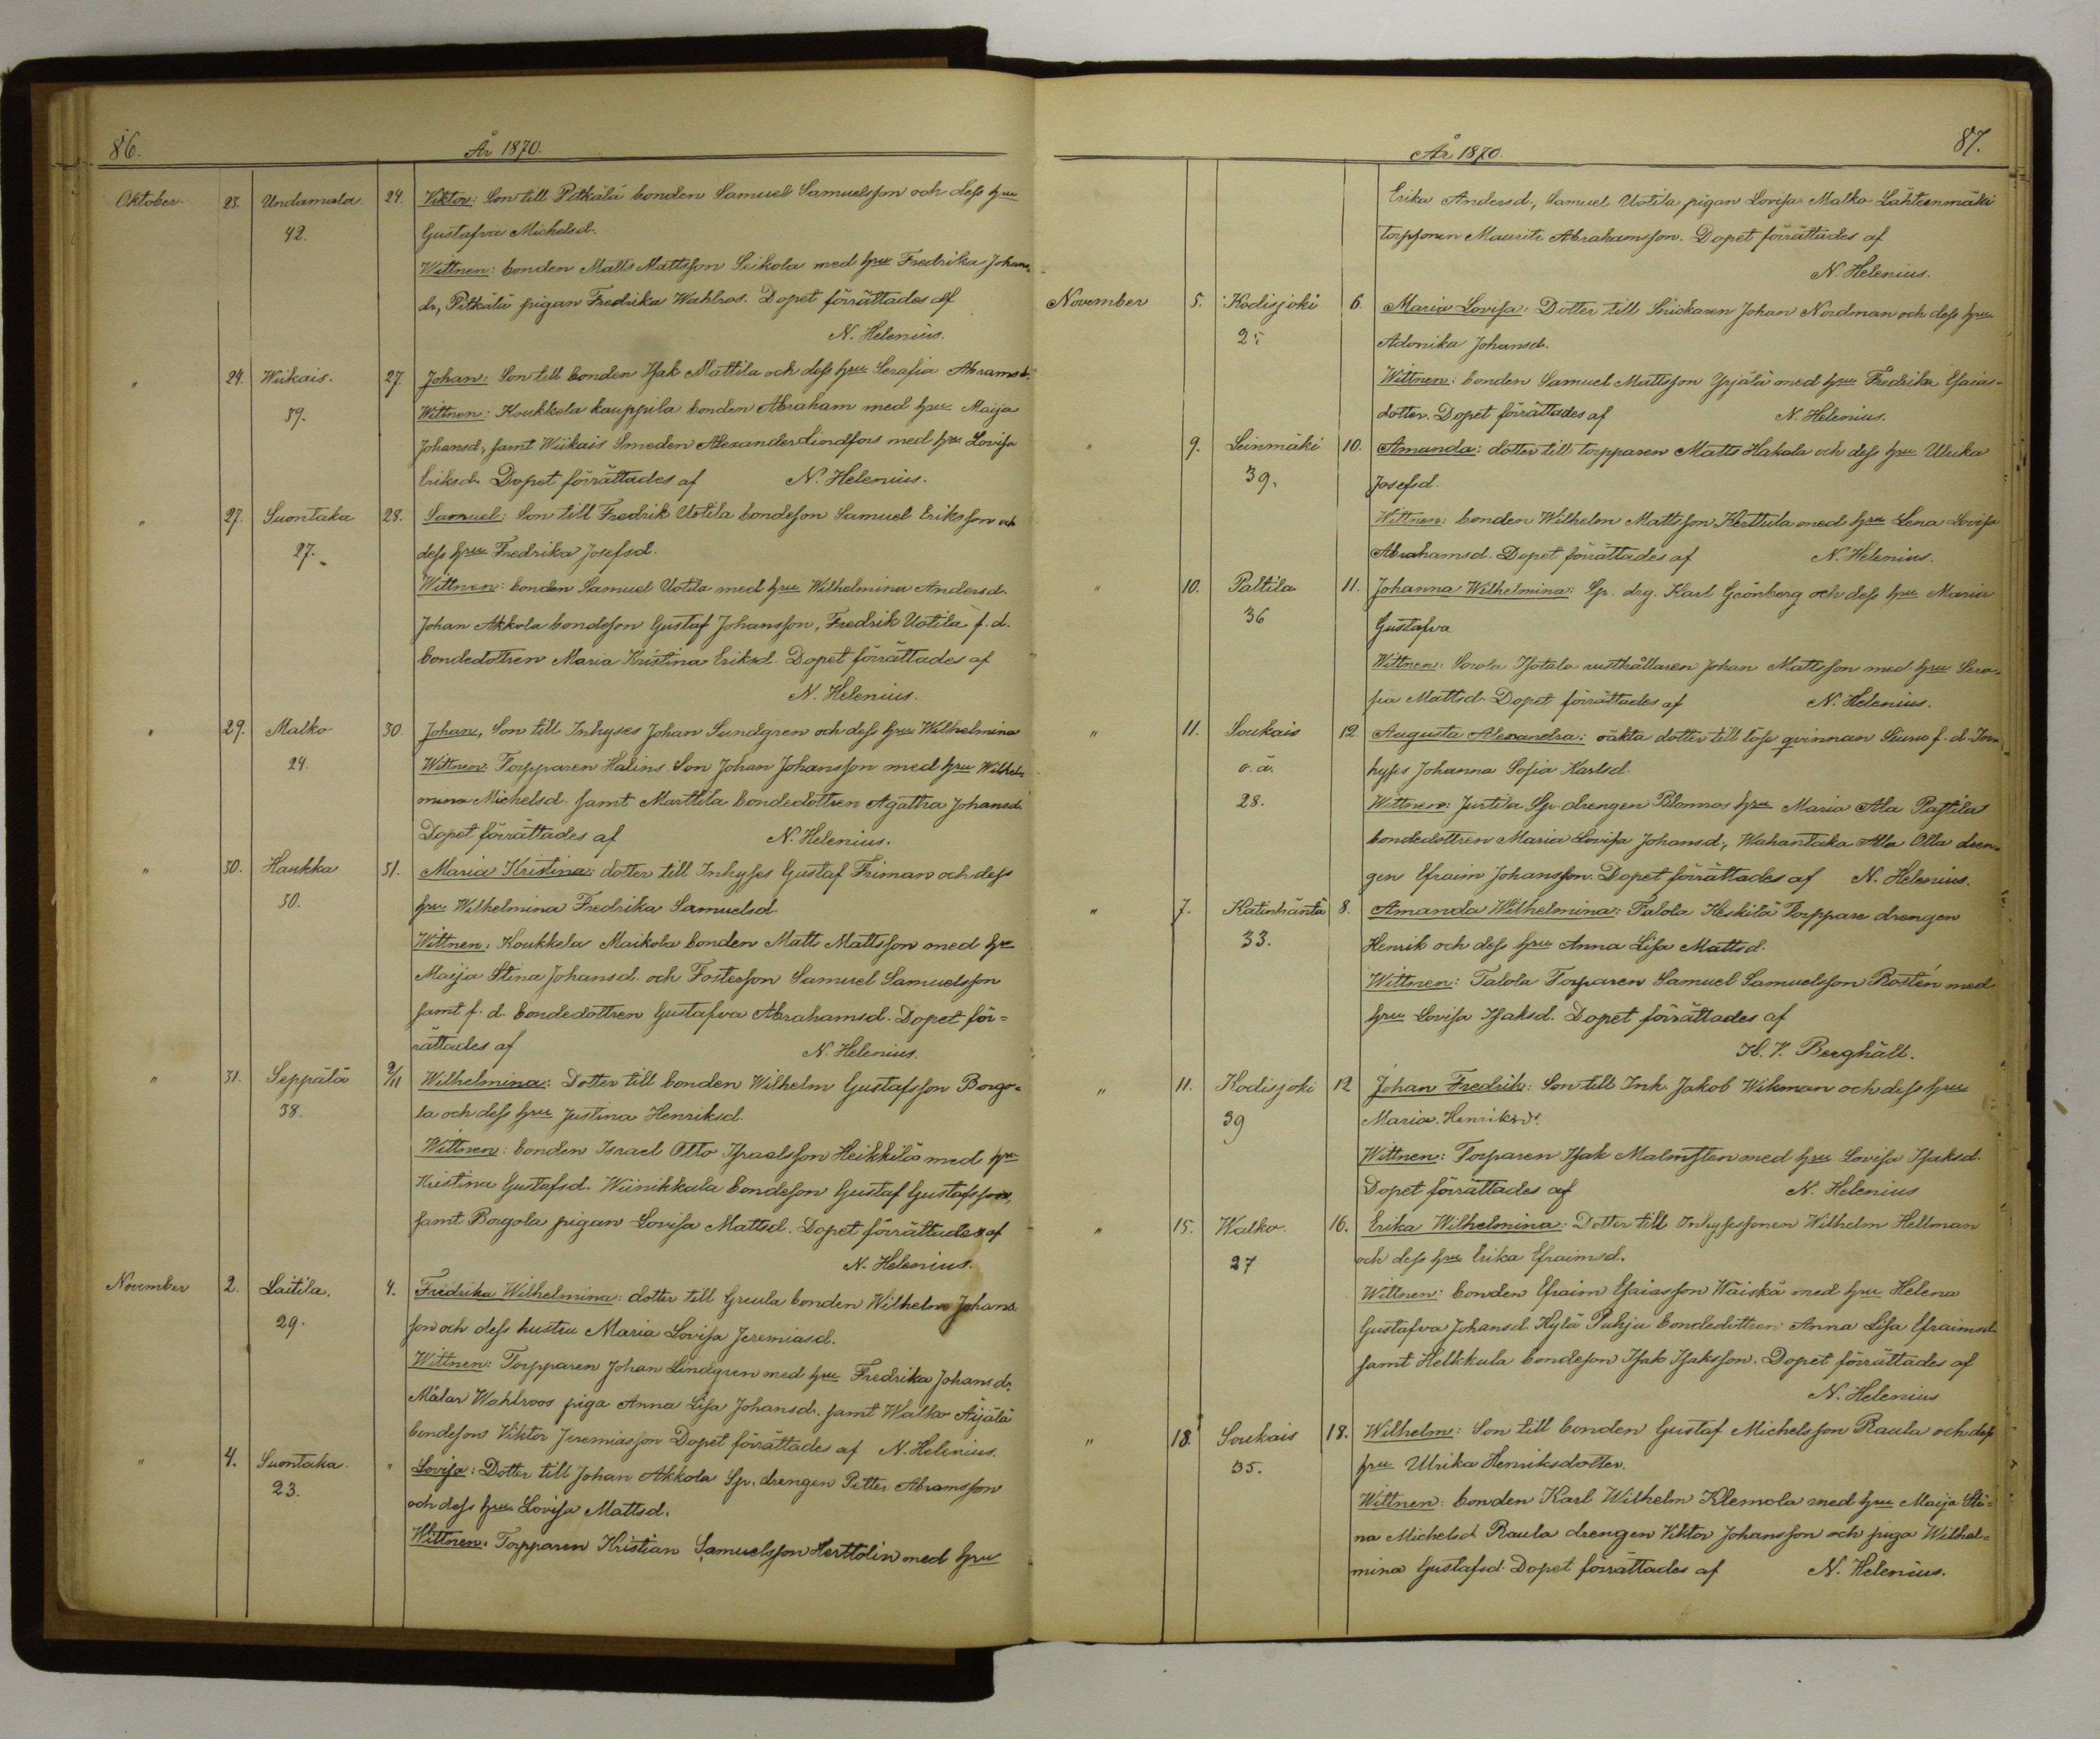 86.
År 1870.
Oktober. 23. Undamula 24. Viktor: Son till Pitkälä bonden Samuel Samuelsson och dess hru
42. Gustafva Michelsd.
Wittnen: bonden Matts Mattsson Seikola med hru Fredrika Johans
dr, Pitkälä pigan Fredrika Wahlros. Dopet förrättades af
N. Helenius.
" 24. Wiikais. 27. Johan: Son till bonden Isak Mattila och dess hru Serafia Abramsd.
39. Wittnen: Koukkela kauppila bonden Abraham med hru Maija
Johansd, samt Wiikais Smeden Alexander Lindfors med hru Lovisa
Eriksd. Dopet förrättades af N. Helenius.
" 27. Suontaka 28. Samuel: Son till Fredrik Uotila bondeson Samuel Eriksson och
27. dess hru Fredrika Josefsd.
Wittnen: bonden Samuel Uotila med hru Wilhelmina Andersd.
Johan Akkola bondeson Gustaf Johansson, Fredrik Uotila f. d.
bondedottren Maria Kristina Eriksd. Dopet förrättades af
N. Helenius.
" 29. Malko 30. Johan, Son till Inhyses Johan Sundgren och dess hru Wilhelmina
24. Wittnen: Torpparen Halins Son Johan Johansson med hru Wilhel-
mina Michelsd. samt Marttila bondedottren Agatha Johansd.
Dopet förrättades af N. Helenius.
" 30. Haukka 31. Maria Kristina: dotter till Inhyses Gustaf Friman och dess
30. hru Wilhelmina Fredrika Samuelsd.
Wittnen: Koukkela Maikola bonden Matt Mattsson med hru
Maija Stina Johansd. och Fosterson Samuel Samuelsson
samt f. d. bondedottren Gustafva Abrahamsd. Dopet för=
rättades af N. Helenius.
" 31. Seppälä 2/11 Wilhelmina: Dotter till bonden Wilhelm Gustafsson Borgo-
38. la och dess hru Justina Henriksd.
Wittnen: bonden Israel Otto Israelsson Heikkilä med hru
Kristina Gustafsd. Wiinikkala bondeson Gustaf Gustafsson,
samt Borgola pigan Lovisa Mattsd. Dopet förrättades af
N. Helenius.
November 2. Laitila. 4. Fredrika Wilhelmina: dotter till Greula bonden Wilhelm Johans
29. son och dess hustru Maria Lovisa Jeremiasd.
Wittnen: Torpparen Johan Lindgren med hru Fredrika Johansdr.
Målar Wahlroos piga Anna Lisa Johansd. samt Walko Äijälä
bondeson Viktor Jeremiasson Dopet förrättades af N. Helenius.
" 4. Suontaka. " Lovisa: Dotter till Johan Akkola Sp. drengen Petter Abramsson
23. och dess hru Lovisa Mattsd.
Wittnen: Torpparen Kristian Samuelsson Herttolin med hru
87.
År 1870.
Erika Andersd., Samuel Uotila pigan Lovisa Malko Lähteenmäki
torpsonen Maurits Abrahamsson. Dopet förrättades af
N. Helenius.
November 5. Kodisjoki 6. Maria Lovisa: Dotter till Snickaren Johan Nordman och dess hru
Adonika Johansd.
Wittnen: bonden Samuel Mattsson Yrjälä med hru Fredrika Esaias-
dotter. Dopet förrättades af N. Helenius.
" 9. Leinmäki 10. Amanda: dotter till torpparen Matts Hakala och dess hru Ulrika
39. Josefsd.
Wittnen: bonden Wilhelm Mattsson Kerttula med hru Lena Lovisa
Abrahamsd. Dopet förrättades af N. Helenius.
" 10. Paltila 11. Johanna Wilhelmina: Sp. drg. Karl Grönberg och dess hru Maria
36 Gustafva
Wittnen: Sorola Isotalo rusthållaren Johan Mattsson med hru Sera-
fia Mattsd. Dopet förrättades af N. Helenius.
" 11. Soukais 12 Augusta Alexandra: oäkta dotter till lösa qvinnan f. d. Inn
o. ä. hyses Johanna Sofia Karlsd.
28. Wittnen: Jurtila Sp. drengen Blomros hru Maria Ala Pastila
bondedottren Maria Lovisa Johansd, Wahantaka Ala Olla dren-
gen Efraim Johansson. Dopet förrättades af N. Helenius.
" 7. Katinhäntä 8. Amanda Wilhelmina: Talola Heskilä Torppare drengen
33. Henrik och dess hru Anna Lisa Mattsd.
Wittnen: Talola Torparen Samuel Samuelsson Rostén med
hru Lovisa Isaksd. Dopet förrättades af
K. V. Berghäll.
" 11. Kodisjoki 12 Johan Fredrik: Son till Inh. Jakob Wikman och dess hru
39 Maria Henriksd.
Wittnen: Torparen Isak Malmsten med hru Lovisa Isaksd.
Dopet förrättades af N. Helenius
" 15. Walko. 16. Erika Wilhelmina: Dotter till Inhysessonen Wilhelm Hellman
27 och dess hru Erika Efraimsd.
Wittnen: bonden Efraim Esaiasson Wäiskä med hru Helena
Gustafva Johansd. Kylä Puhju bondedottren Anna Lisa Efraimsd.
samt Helkkula bondeson Isak Isaksson. Dopet förrättades af
N. Helenius
" 18. Soukais 18. Wilhelm: Son till bonden Gustaf Michelsson Raula och dess
35. hru Ulrika Henriksdotter.
Wittnen: bonden Karl Wilhelm Klemola med hru Maija Sti=
na Michelsd Raula drengen Viktor Johansson och piga Wilhel=
mina Gustafsd. Dopet förrättades af N. Helenius.